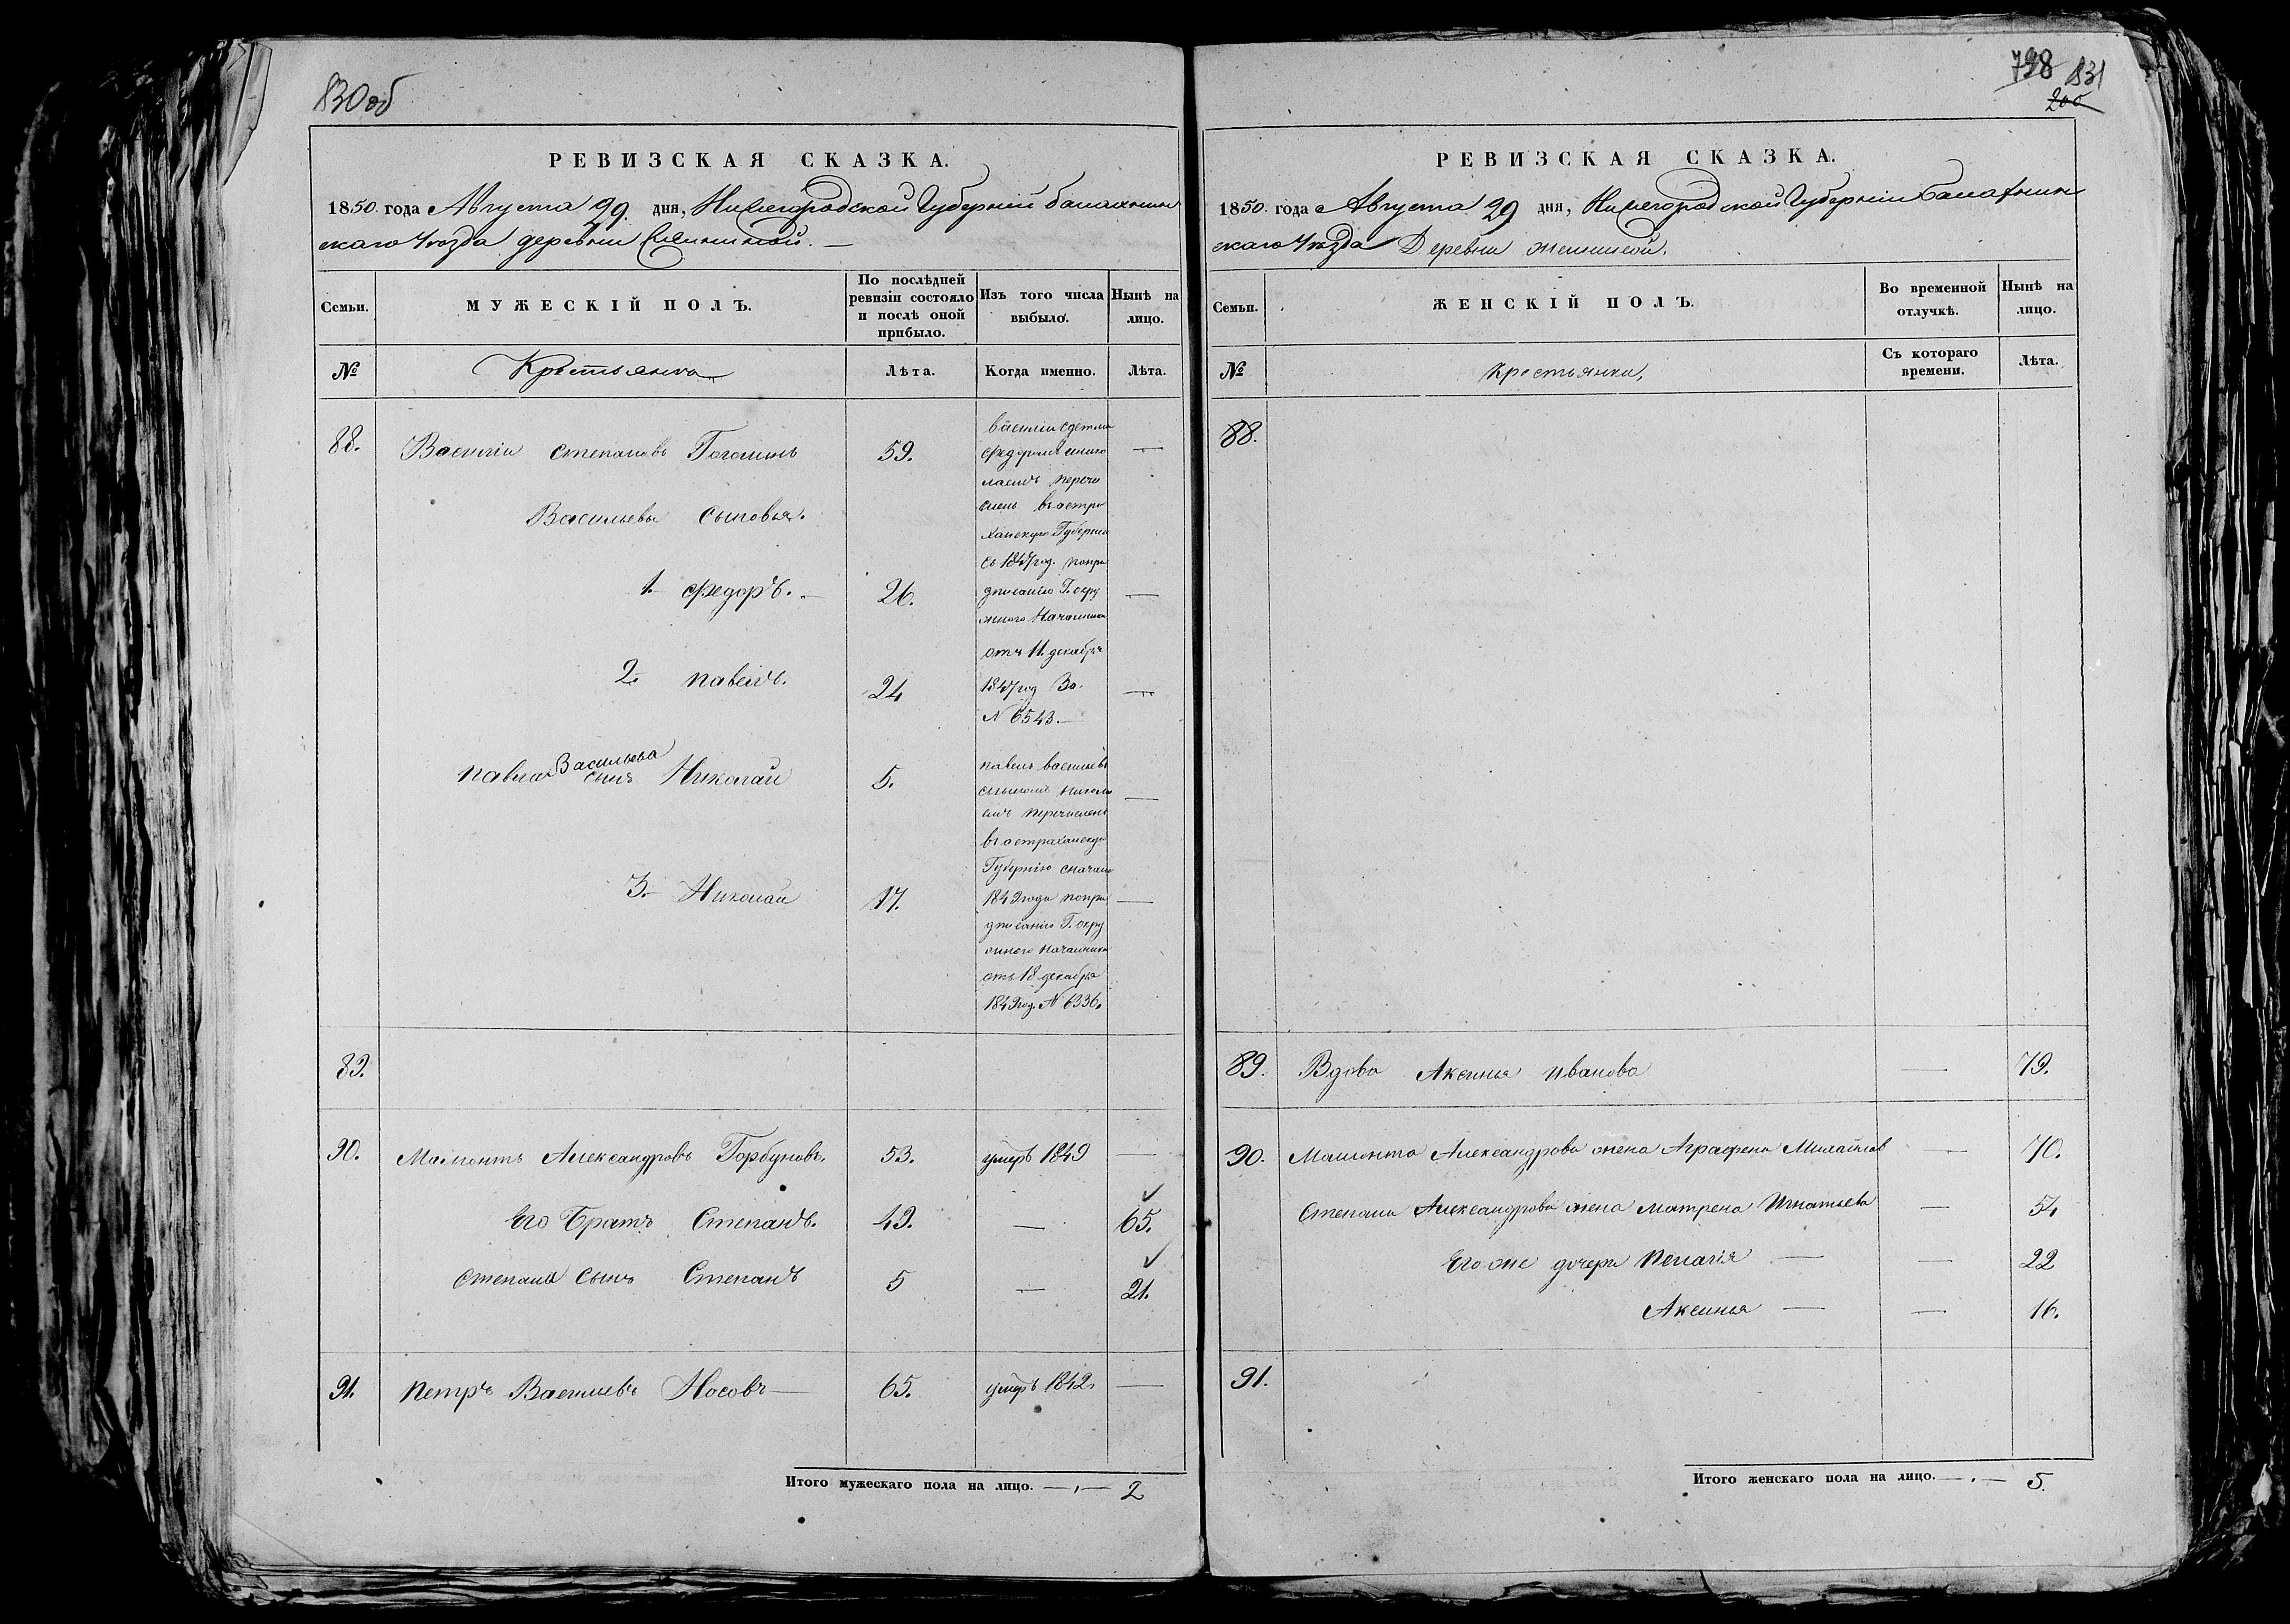 830 об
РЕВИЗСКАЯ СКАЗКА.
1850. года Августа 29. дня, Нижегородской Губерній балахнин
скаго Уѣзда деревни
Семьи.
МУЖЕСКІЙ ПОЛЪ.
По послѣдней ревизіи состояло и послѣ оной прибыло.
Изъ того числа выбыло.
Нынѣ на лицо.
№
Крестьяне
Лѣта.
Когда именно.
Лѣта.
88. Василіи степановъ 59. —
василіи сдетми
федоромъ инико
лаемъ перечи
сленъ въ астра
ханскую Губернію
съ 1847 год. попре
дписанію Г. окру
жнаго Начальника
отъ 11. декабря
1847 год За.
N 6543.—
Васильевы сыновья.
1. федоръ. — 26. —
2. павелъ. 24 —
павла Васильева сынъ Николаи 5. —
павелъ васильевъ
сыномъ Никола
емъ перечисленъ
въ астраханскую
Губернію сначала
1849 года попре
дписанію Г. окру
жнаго начальника
отъ 18 декабря
1849 год. N 6336.
3. Николаи 17. —
89.
90. Мамонтъ Александровъ Горбуновъ. 53. умеръ 1849 —
Его Братъ Степанъ. 49. — 65.
степана сынъ Степанъ 5 — 21.
91. петръ Васильевъ Носовъ — 65. умеръ 1842. —
Итого мужескаго пола на лицо. — 2
798 831
200
РЕВИЗСКАЯ СКАЗКА.
1850. года Августа 29 дня, Нижегородской Губерніи балахнин
скаго Уѣзда Деревни
Семьи.
ЖЕНСКІЙ ПОЛЪ.
Во временной отлучкѣ.
Нынѣ на лицо.
№
крестьянки,
Съ котораго времени.
Лѣта.
88.
89. Вдова Аксинья иванова — 79.
90. Мамонта Александрова жена Аграфена — 70.
степана Александрова жена матрена Игнатьева — 54
Его же дочери пелагія — — 22
Аксинья — — 16.
91.
Итого женскаго пола на лицо. — 5.